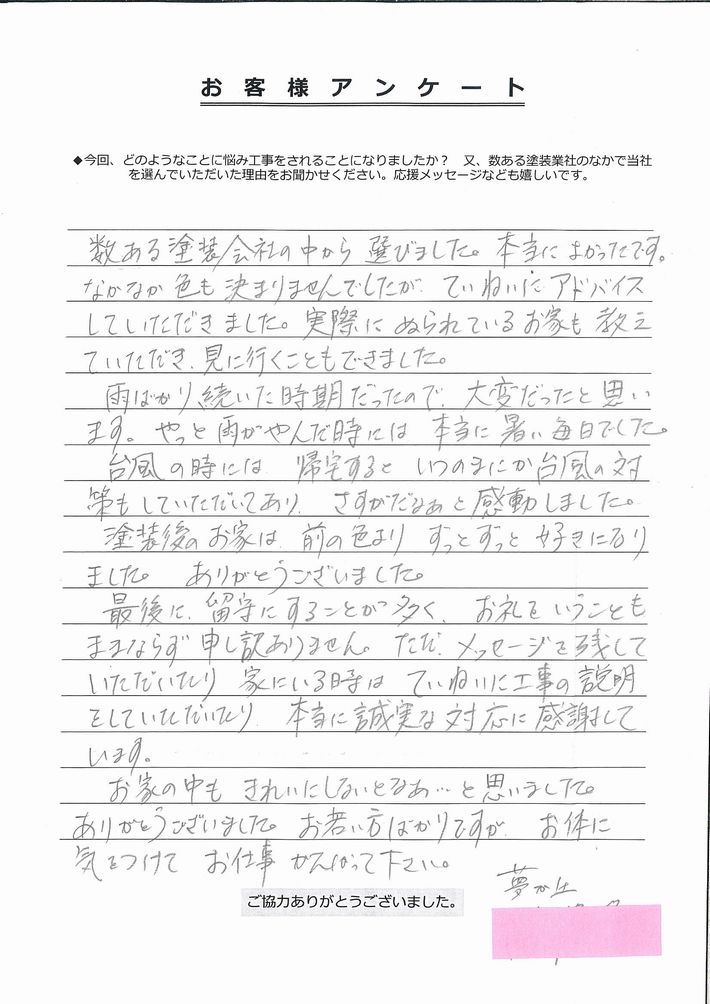 お客様アンケート
◆今回、どのようなことに悩み工事をされることになりましたか？　又、数ある塗装業社のなかで当社
を選んでいただいた理由をお聞かせください。応援メッセージなども嬉しいです。
数ある塗装会社の中から 選びました。本当によかったです。
なかなか色も決まりませんでしたが、ていねいにアドバイス
していただきました。実際にぬられているお家も教え
ていただき、見に行くこともできました。
雨ばかり続いた時期だったので、大変だったと思い
ます。やっと雨がやんだ時には 本当に暑い毎日でした。
台風の時には 帰宅すると いつのまにか台風の対
策もしていただいてあり、さすがだなぁと感動しました。
塗装後のお家は、前の色より ずっとずっと好きになり
ました。 ありがとうございました。
最後に、留守にすることが多く、お礼をいうことも
ままならず申し訳ありません。ただ、メッセージを残して
いただいたり 家にいる時は ていねいに工事の説明
をしていただいたり、本当に誠実な対応に感謝して
います。
お家の中も きれいにしないとなあ…と思いました。
ありがとうございました。お若い方ばかりですが、お体に
気をつけて お仕事 がんばって下さい。
夢が丘
ご協力ありがとうございました。